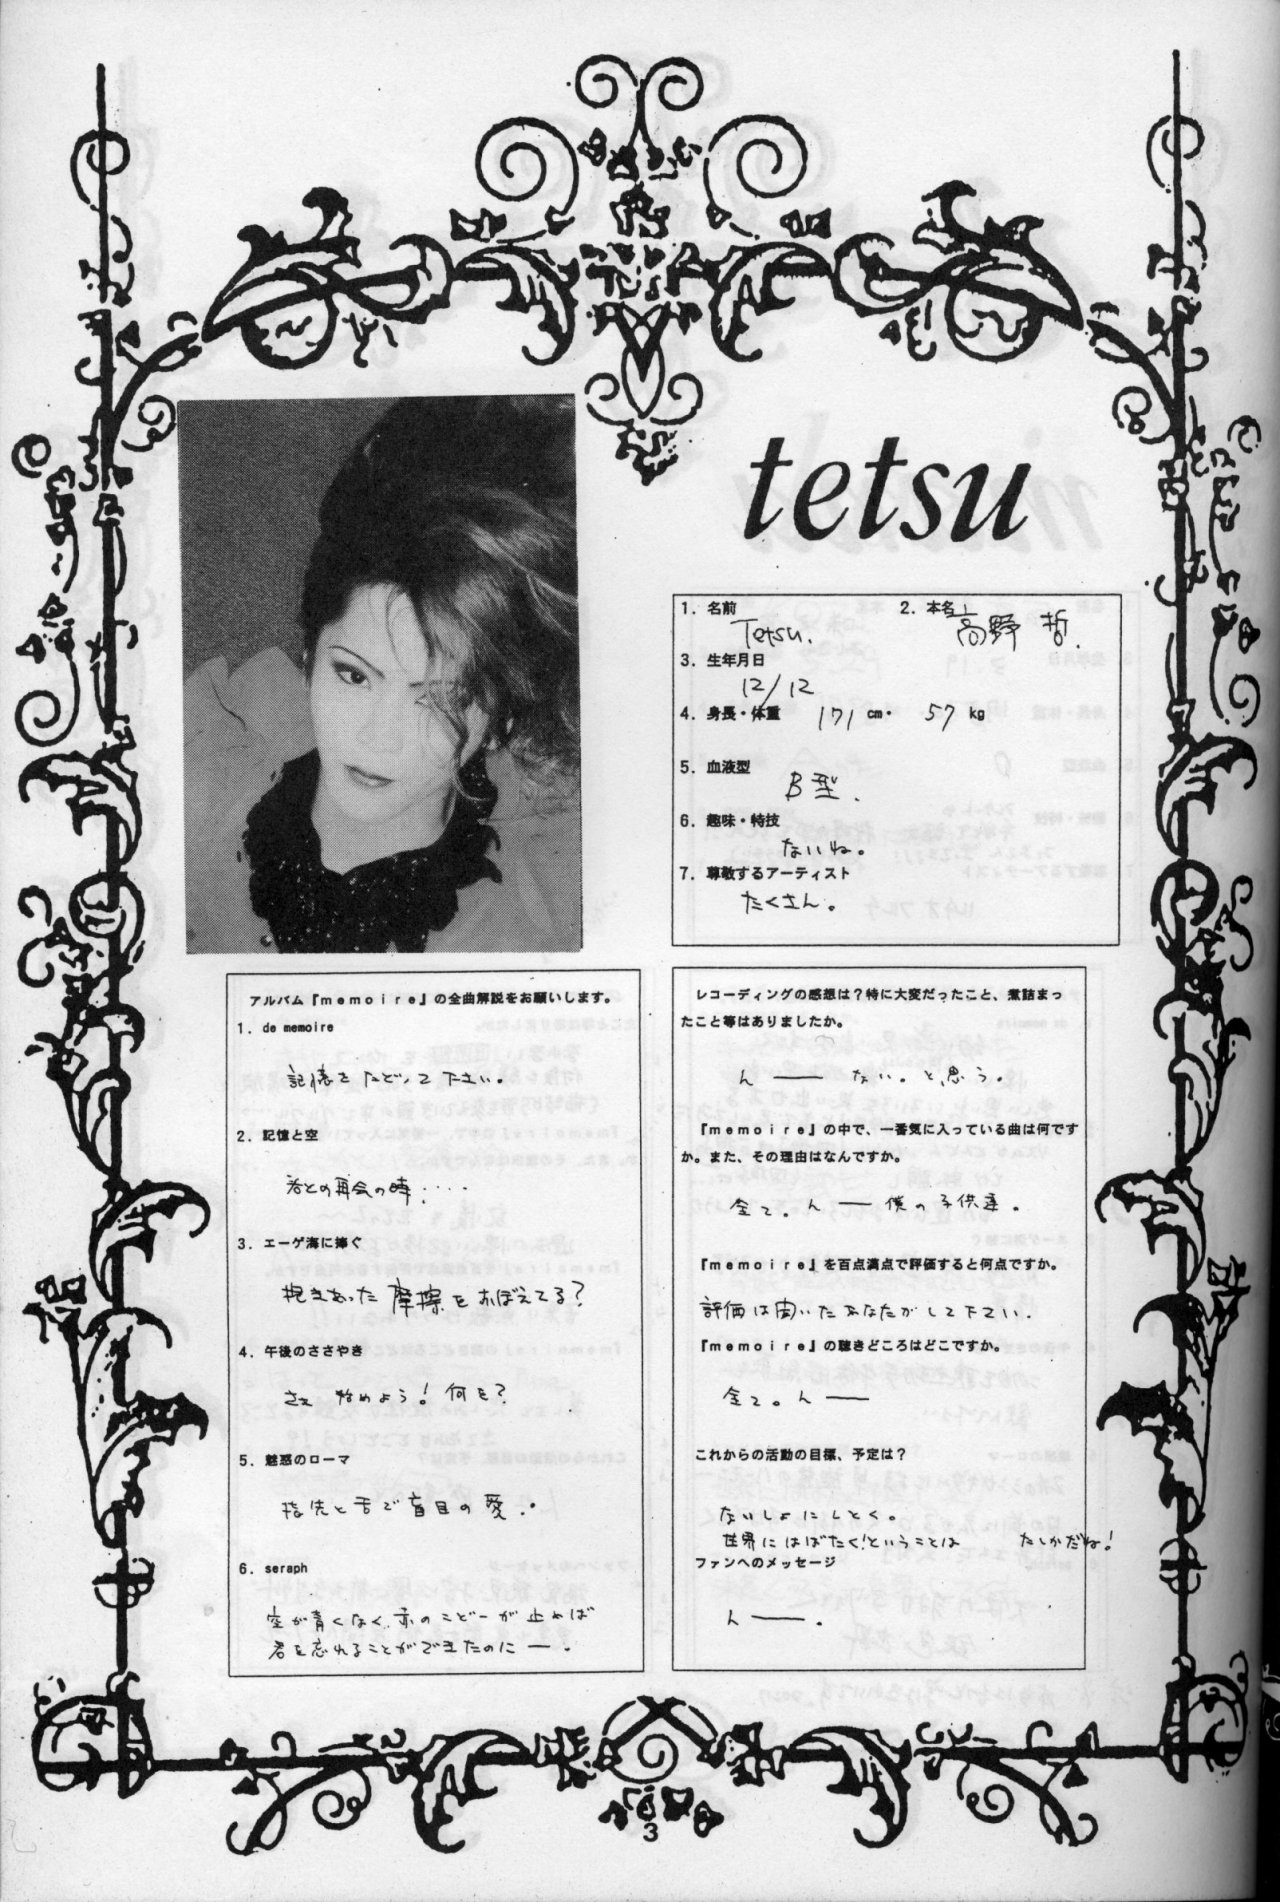 tetsu
1. 名前
Tetsu.
2. 本名
高野 哲.
3. 生年月日
12/12
4. 身長・体重 171 cm・ 57 kg
5. 血液型
B型.
6. 趣味・特技
ないね。
7. 尊敬するアーティスト
たくさん。
アルバム『memoire』の全曲解説をお願いします。
1. de memoire
記憶をたどって下さい。
2. 記憶と空
君との再会の時・・・・
3. エーゲ海に捧ぐ
抱きあった摩擦をおぼえてる?
4. 午後のささやき
さぁ 始めよう! 何を?
5. 魅惑のローマ
指先と舌で盲目の愛.
6. seraph
空が青くなく, 赤のこどーが止めば
君を忘れることができたのにー.
レコーディングの感想は?特に大変だったこと、煮詰まっ
たこと等はありましたか。
ん ── ない。と思う。
『memoire』の中で、一番気に入っている曲は何です
か。また、その理由はなんですか。
全て。ん ── 僕の子供達。
『memoire』を百点満点で評価すると何点ですか。
評価は聞いたあなたがして下さい.
『memoire』の聴きどころはどこですか。
全て。ん ──
これからの活動の目標、予定は?
ないしょにしとく。
世界にはばたく!ということは たしかだね!
ファンへのメッセージ
ん ──.
3